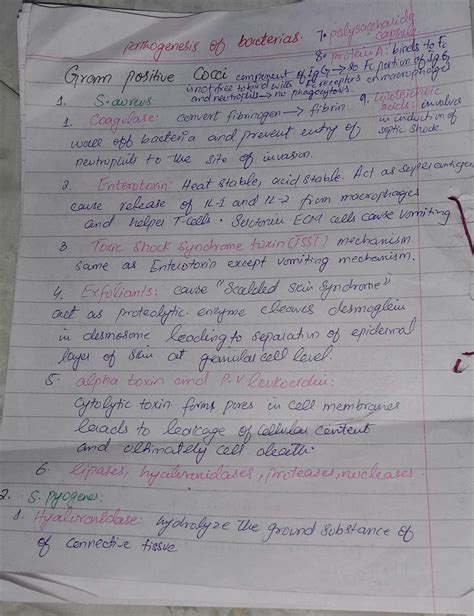 pathogenesis of bacterias.
7. polysaccharide
capsule.
8. protein A: binds to Fc
component of IgG → so Fc portion of IgG
is not free to bind with Fc receptors on macrophages
and neutrophils → no phagocytosis.
9. Lipoteichoic
acids: involves
in induction of
septic shock.
Gram positive Cocci
1. S-aureus
1. Coagulase: convert fibrinogen → fibrin
wall off bacteria and prevent entry of
neutrophils to the site of invasion.
2. Enterotoxin: Heat stable, acid stable. Act as superantigen
cause release of IL-1 and IL-2 from macrophages
and helper T-cells. Serotonin cells cause vomiting
3 Toxic Shock Syndrome toxin (TSST) mechanism
same as Enterotoxin except vomiting mechanism.
4. Exfoliants: cause "Scalded Skin Syndrome"
act as proteolytic enzyme cleaves desmoglein
in desmosome leading to separation of epidermal
layer of skin at granular cell level.
5. alpha toxin and P-V leukocidin:
Cytolytic toxin forms pores in cell membranes
leads to leakage of cellular content
and ultimately cell death.
6. lipases, hyaluronidases, proteases, nucleases.
2. S. pyogenes:
1. Hyaluronidase: hydrolyze the ground substance of
of connective tissue